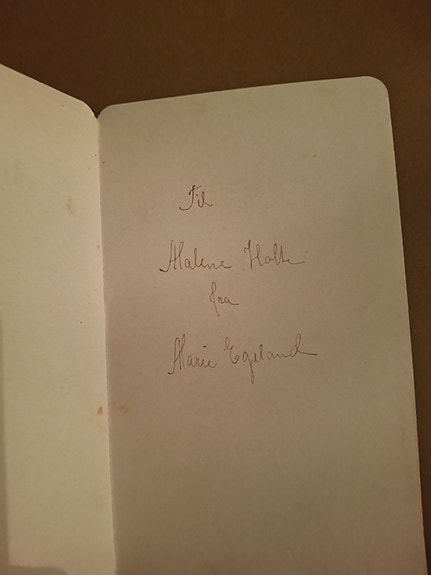 Til
Malene Holte
fra
Marie Egeland